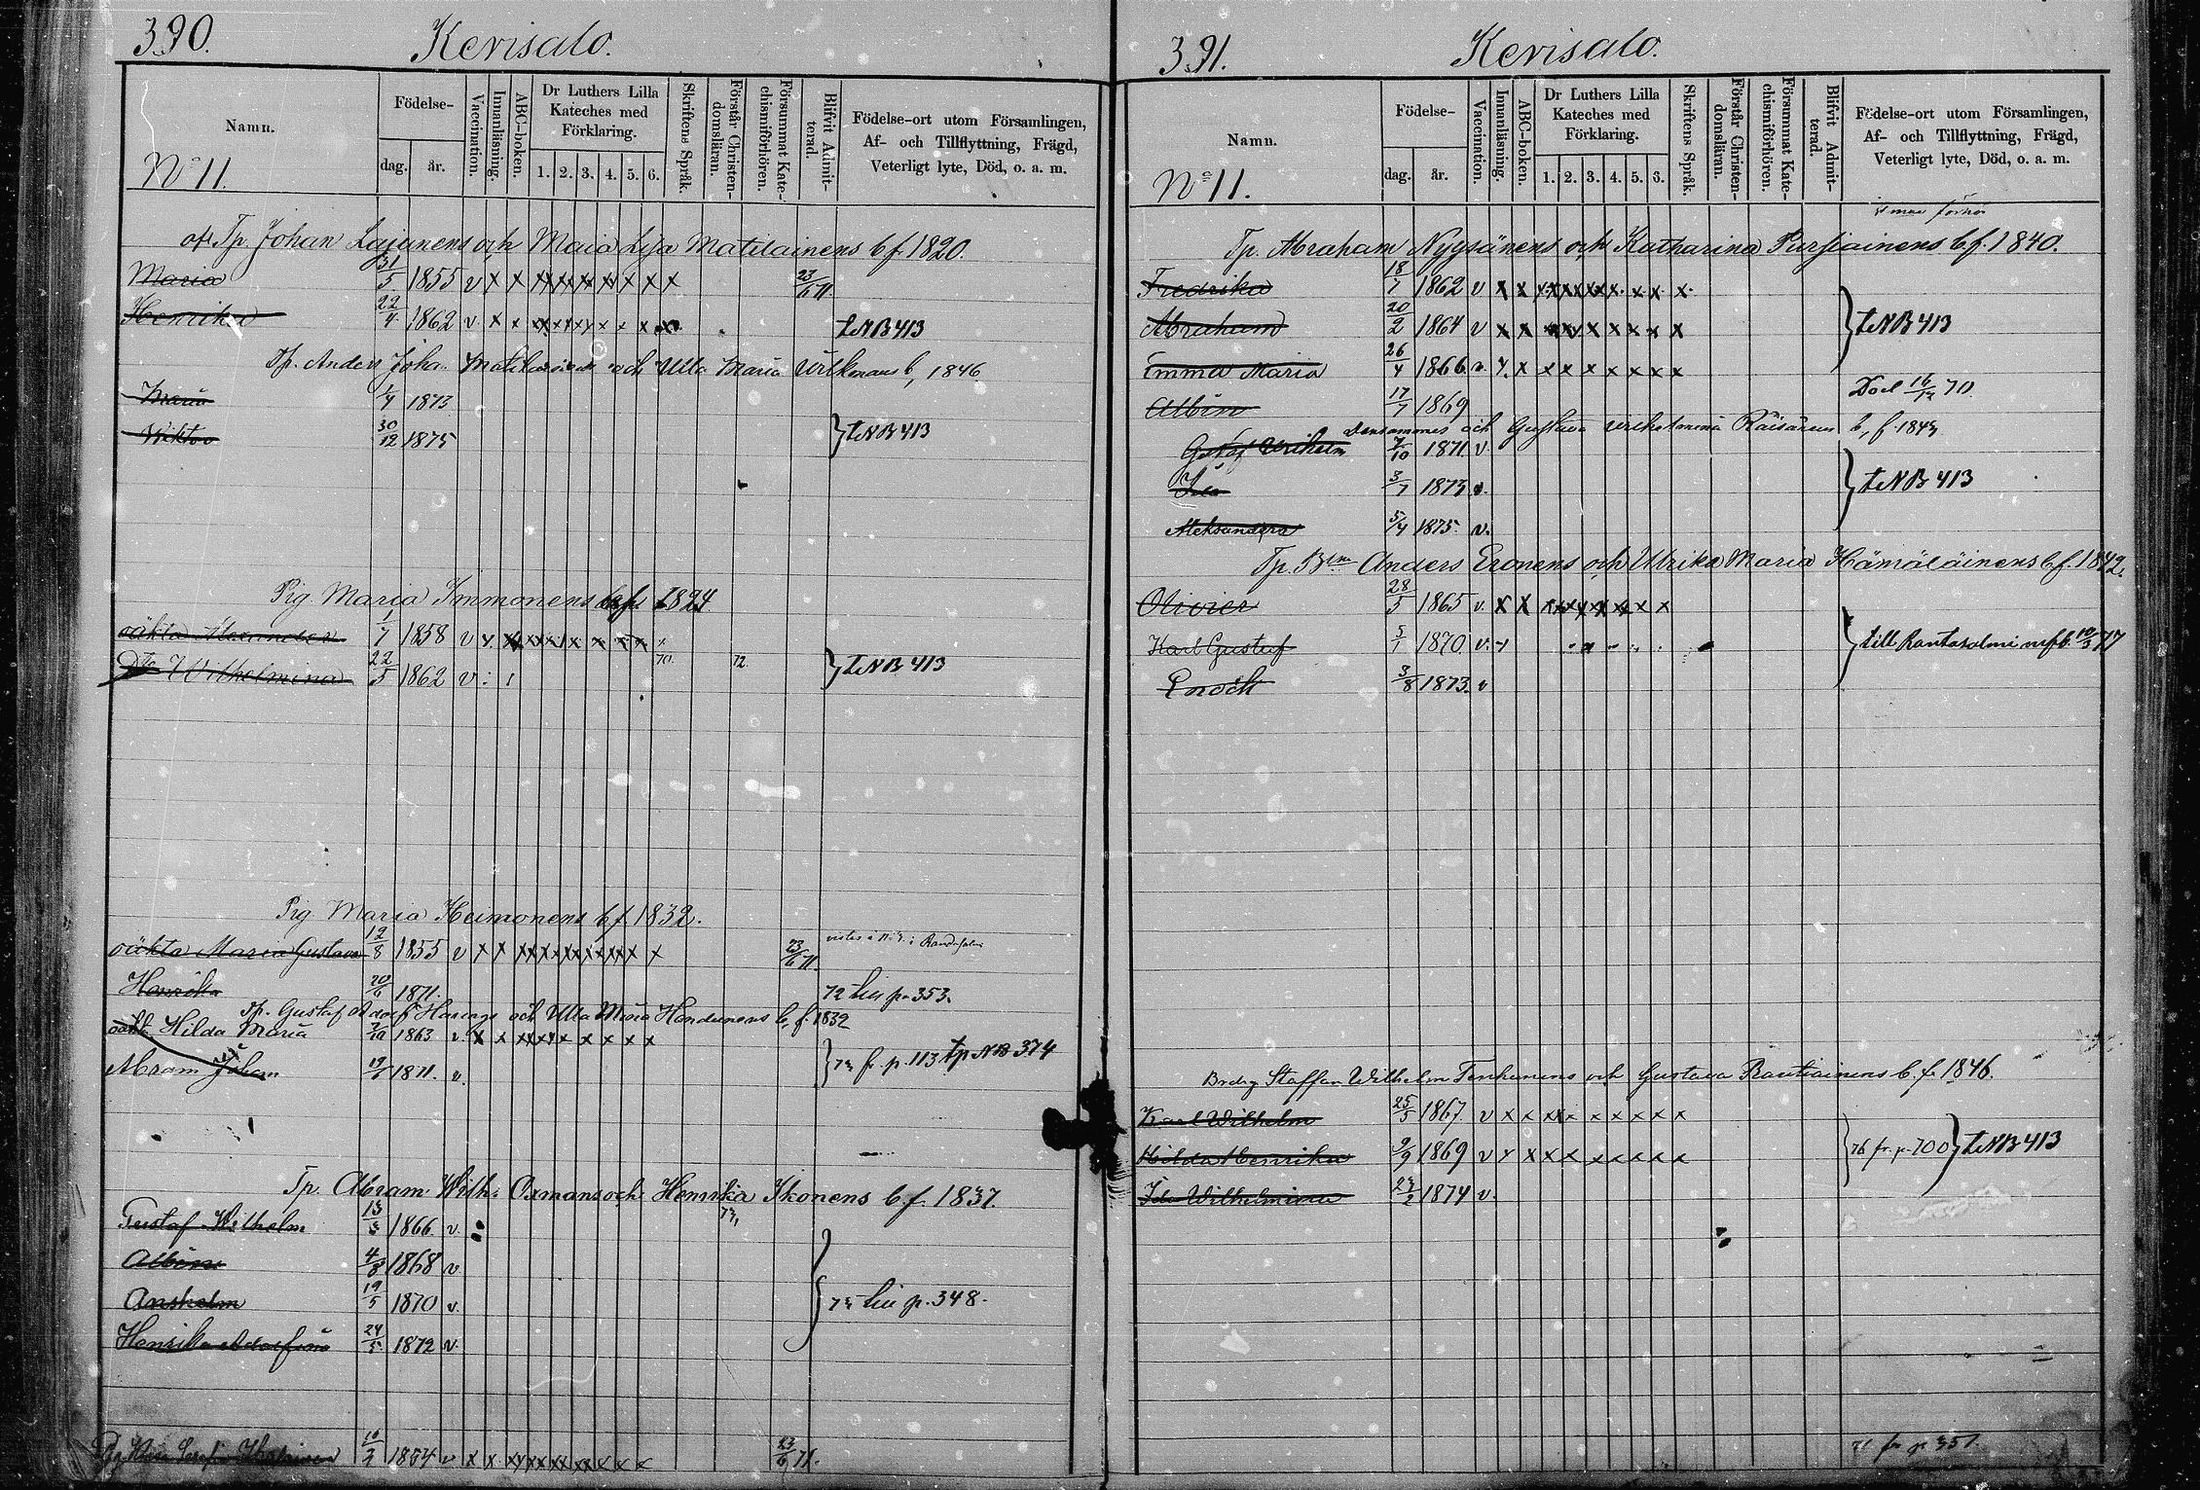 390.
Kerisalo.
Namn.
Födelse-
dag.
år.
Vaccination.
Innanläsning.
ABC-boken.
Dr Luthers Lilla Kateches med Förklaring.
1. 2. 3. 4. 5. 6.
Skriftens Språk.
Förstår Christen-domsläran.
Försummat Kate-chismiförhören.
Blifvit Admit-terad.
Födelse-ort utom Församlingen,
Af- och Tillflyttning, Frägd,
Veterligt lyte, Död, o. a. m.
No 11.
Tp. Johan Lajunens och Maia Lisa Matilainens b f. 1820.
Maria 31/5 1855 v x x x x x x x x x 23/6 71.
Henrika 22/4 1862 v x x x x x x x x x t NB 413
Tp. Anders Joha och Ulla Maria b, 1846
Maria 1/4 1873
Wiktor 30/12 1875 t NB 413
Pig. Maria Immonens 1824
oäkta Alexander 1/7 1858 v x x x x x x x x x
Dto Wilhelmina 22/5 1862 v 70. 72. t NB 413
Pig. Maria Heimonens b f. 1832.
oäkta Maria Gustava 12/8 1855 v x x x x x x x x x 23/6 71.
Henrika 20/6 1871. 72 p. 353.
Tp. Gustaf Adolf och Ulla Maria b, f. 1832
oäkta Hilda Maria 1863 v x x x x x x x x x
Abram Johan 1871. v. fr p. 113 tp NB 374
Tp. Abram Wilh: Oxmans och Henrika Ikonens b f. 1837.
Gustaf Wilhelm 13/3 1866 v.
Albin 4/8 1868 v
Anshelm 19/5 1870 v. p. 348.
Henrika Adolfina 24/5 1872 v.
Pig 1854 v x x x x x x x x x 23/6 71.
391.
Kerisalo.
Namn.
Födelse-
dag.
år.
Vaccination.
Innanläsning.
ABC-boken.
Dr Luthers Lilla Kateches med Förklaring.
1. 2. 3. 4. 5. 6.
Skriftens Språk.
Förstår Christen-domsläran.
Försummat Kate-chismiförhören.
Blifvit Admit-terad.
Födelse-ort utom Församlingen,
Af- och Tillflyttning, Frägd,
Veterligt lyte, Död, o. a. m.
No 11.
Tp. Abraham Nyyssänens och Katharina Pursiainens b f. 1840.
Fredrika 18/7 1862 v x x x x x x x x x
Abraham 20/2 1864 v x x x x x x x x x t NB 413
Emma Maria 26/4 1866 v. x x x x x x x x x
Albin 17/7 1869 Död 70.
Densammes och Gustava Wilhelmina Räisänens b, f. 1849
Gustaf Wilhelm 7/10 1871 v.
Ida 3/7 1873 v. t NB 413
Aleksandra 5/4 1875 v.
Tp. Anders Eronens och Ulrika Maria Hämäläinens b f. 1842.
Olivier 28/5 1865 v. x x x x x x x x
Karl Gustaf 5/1 1870. v. till Rantasalmi 77
Enock 3/8 1873. v
Staffan Wilhelm Tenhunens och Gustava Rautiainens b. f. 1846.
Karl Wilhelm 25/5 1867. v x x x x x x x x x
Hilda Henrika 9/9 1869 v x x x x x x x x x 76 fr. p. 700 t NB 413
Ida Wilhelmina 1874 v.
71 fr p. 351.